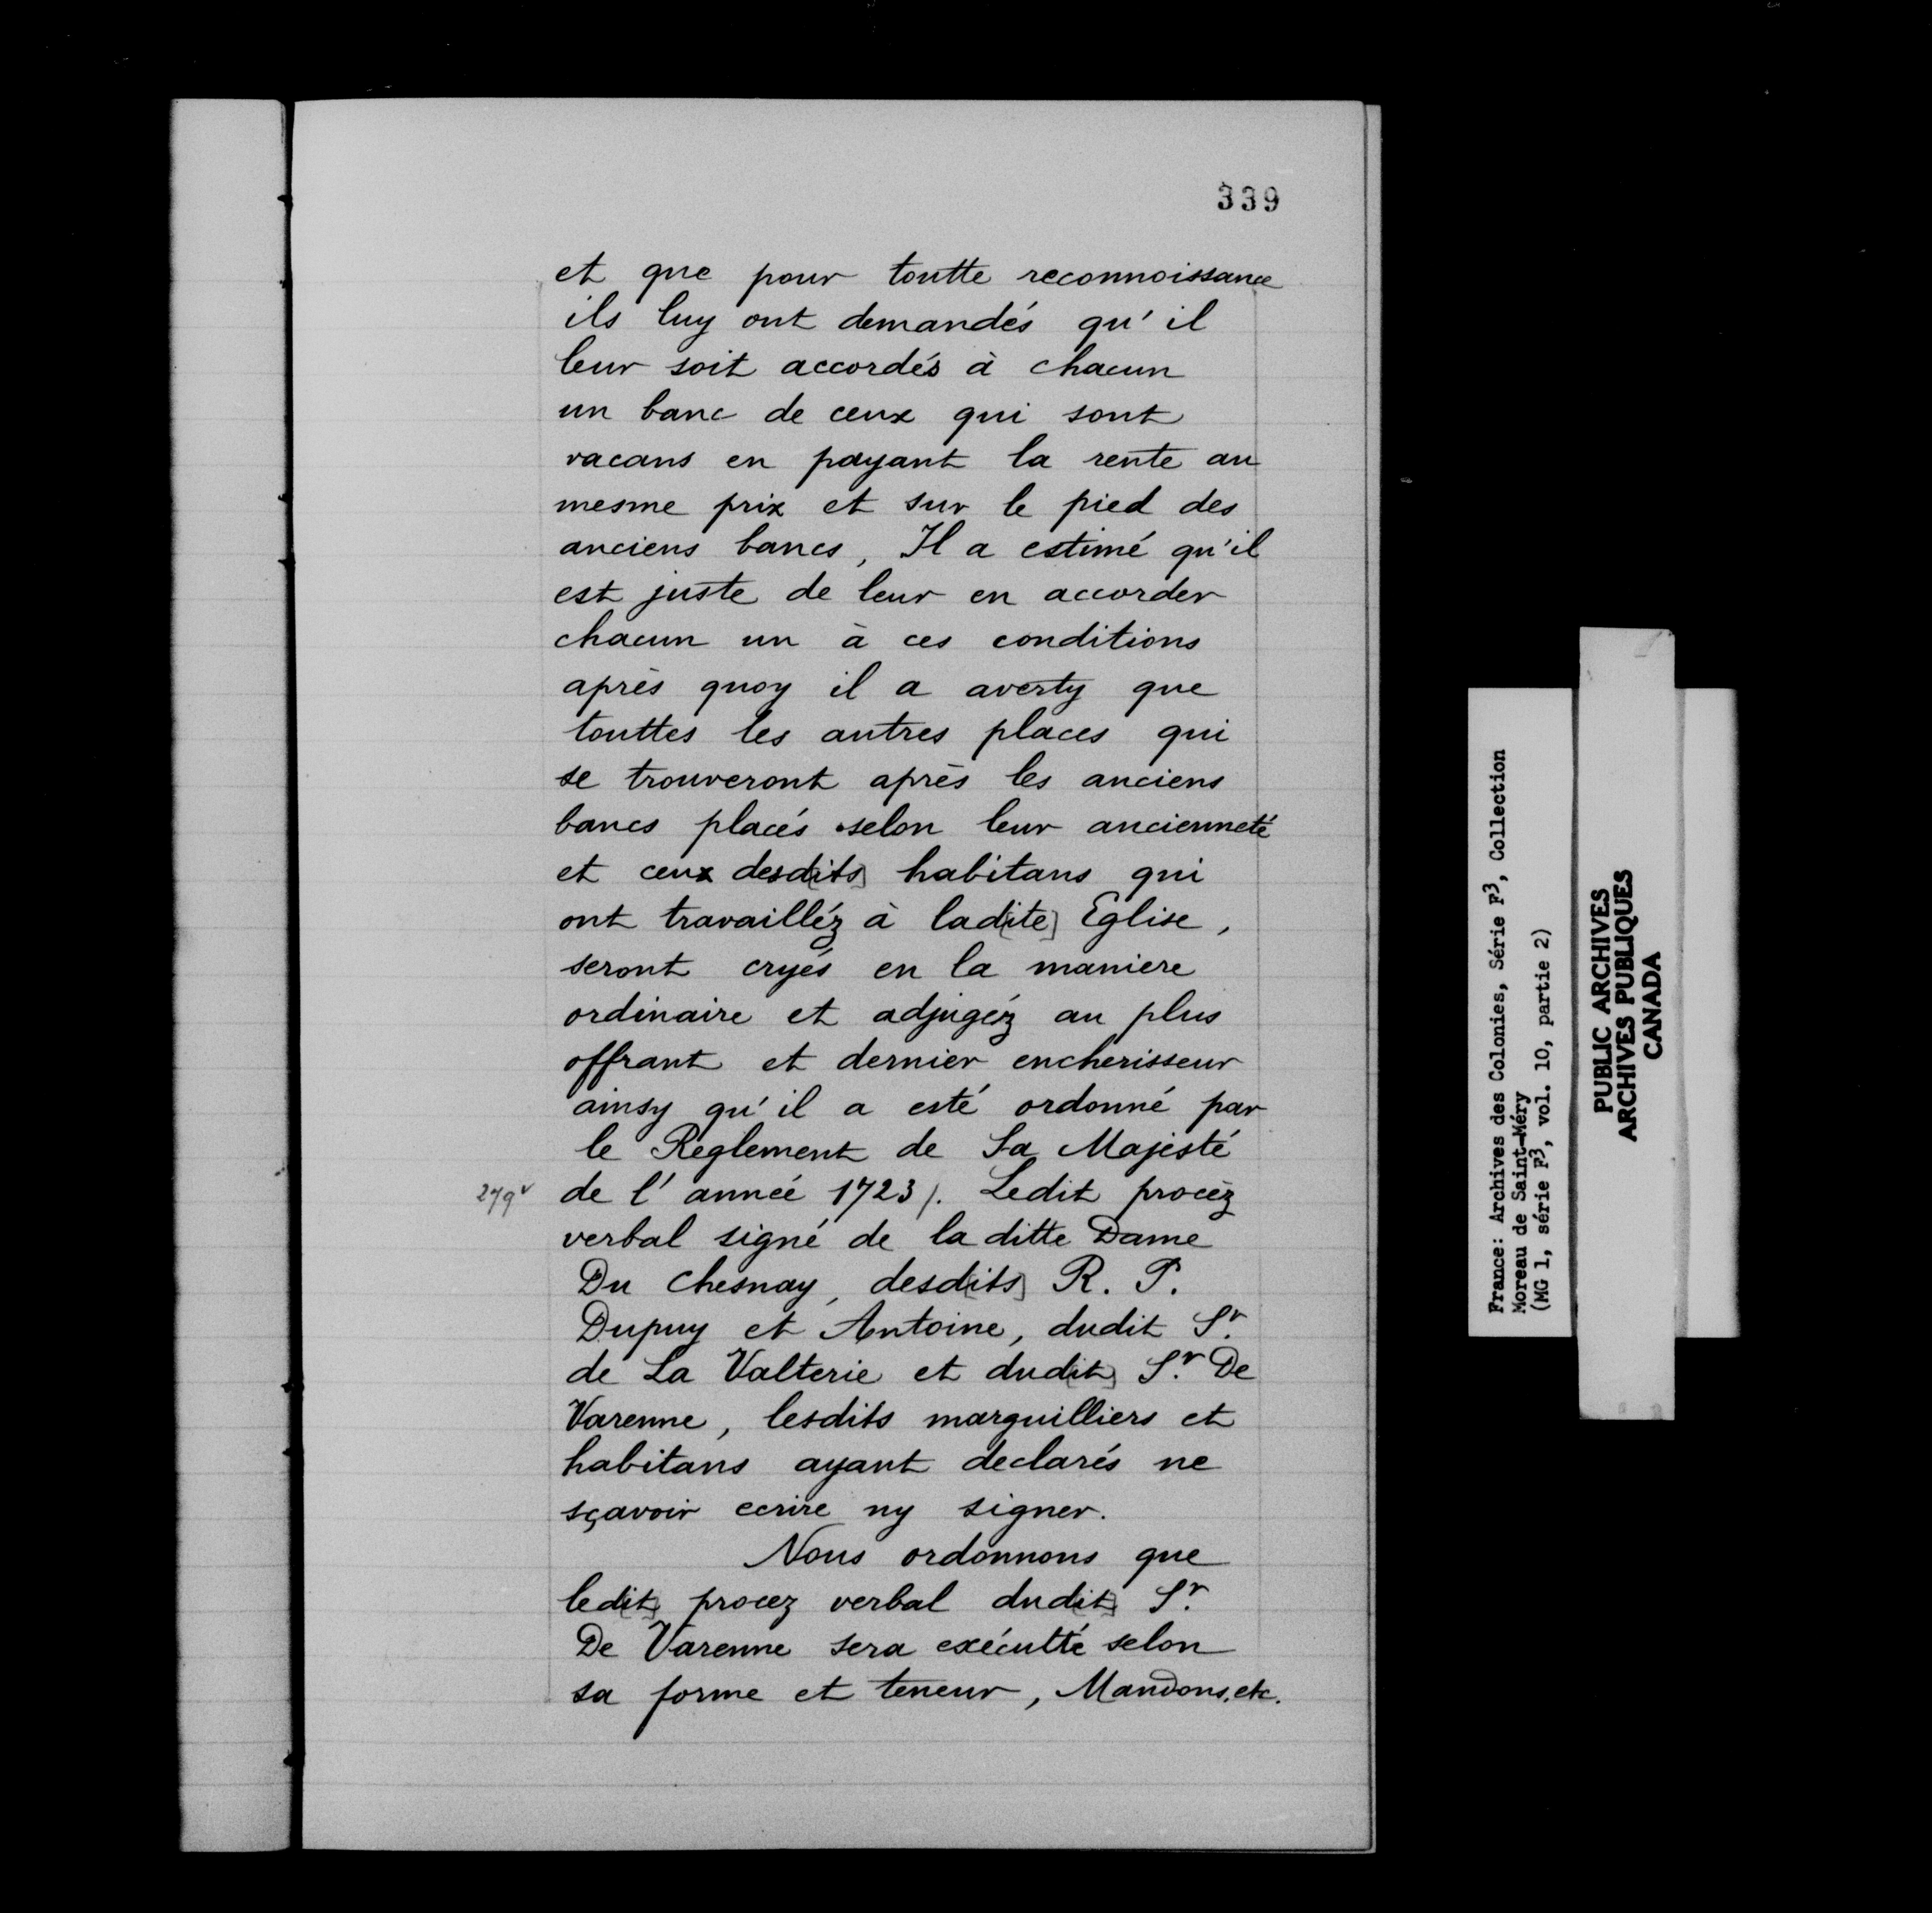 339
et que pour toutte reconnoissance
ils luy ont demandés qu'il
leur soit accordés à chacun
un banc de ceux qui sont
vacans en payant la rente au
mesme prix et sur le pied des
anciens bancs, Il a estimé qu'il
est juste de leur en accorder
chacun un à ces conditions
après quoy il a averty que
touttes les autres places qui
se trouveront après les anciens
bancs placés selon leur ancienneté
et ceux desd[its] habitans qui
ont travailléz à lad[ite] Eglise,
seront cryés en la maniere
ordinaire et adjugéz au plus
offrant et dernier encherisseur
ainsy qu'il a esté ordonné par
le Reglement de Sa Majesté
279v de l'année 1723/. Ledit procèz
verbal signé de la ditte Dame
Du Chesnay, desd[its] R. P.
Dupuy et Antoine, dudit Sr.
de La Valterie et dud[it] Sr. De
Varenne, lesdits marguilliers et
habitans ayant declarés ne
sçavoir ecrire ny signer.
Nous ordonnons que
led[it] procez verbal dud[it] Sr.
De Varenne sera exécutté selon
sa forme et teneur, Mandons, etc.
France: Archives des Colonies, Série F3, Collection
Moreau de Saint-Méry
(MG 1, série F3, vol. 10, partie 2)
PUBLIC ARCHIVES
ARCHIVES PUBLIQUES
CANADA